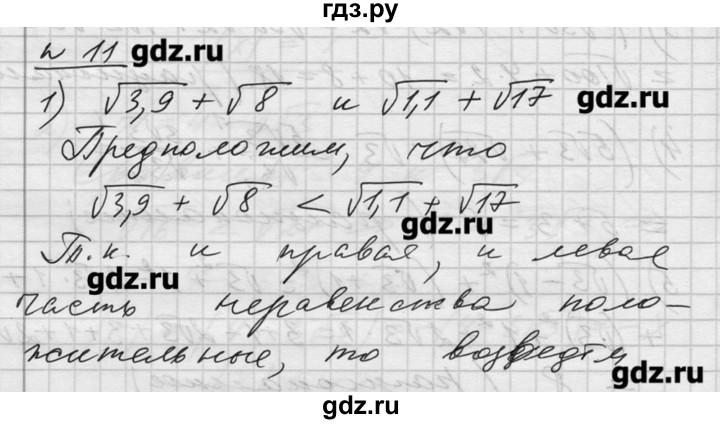 гдз.ру
№ 11 gdz.ru
1) √3,9 + √8 и √1,1 + √17 gdz.ru
Предположим, что
√3,9 + √8 < √1,1 + √17
gdz.ru
Т.к. и правая, и левая
gdz.ru
часть неравенства поло-
жительные, то
gdz.ru
gdz.ru